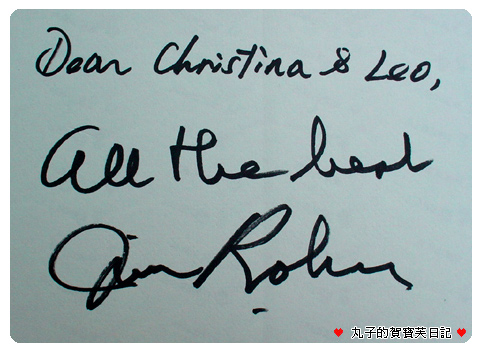 Dear Christina & Leo,
All the best
Jim Rohn
♥ 丸子的賀寶芙日記 ♥